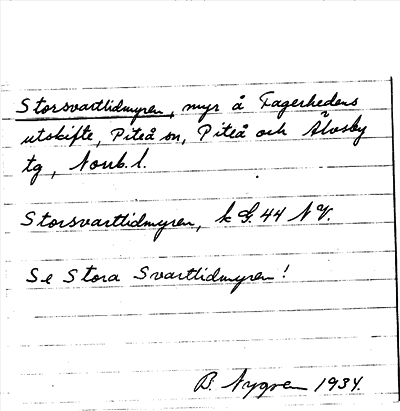 Storsvarttidmyren, myr å Fagerhedens
utskifte, Piteå sn, Piteå och Älvsby
tg, Norrb. l.
Storsvarttidmyren, k G. 44 N V.
Se Stora Svarttidmyren!
B. Nygren 1934.